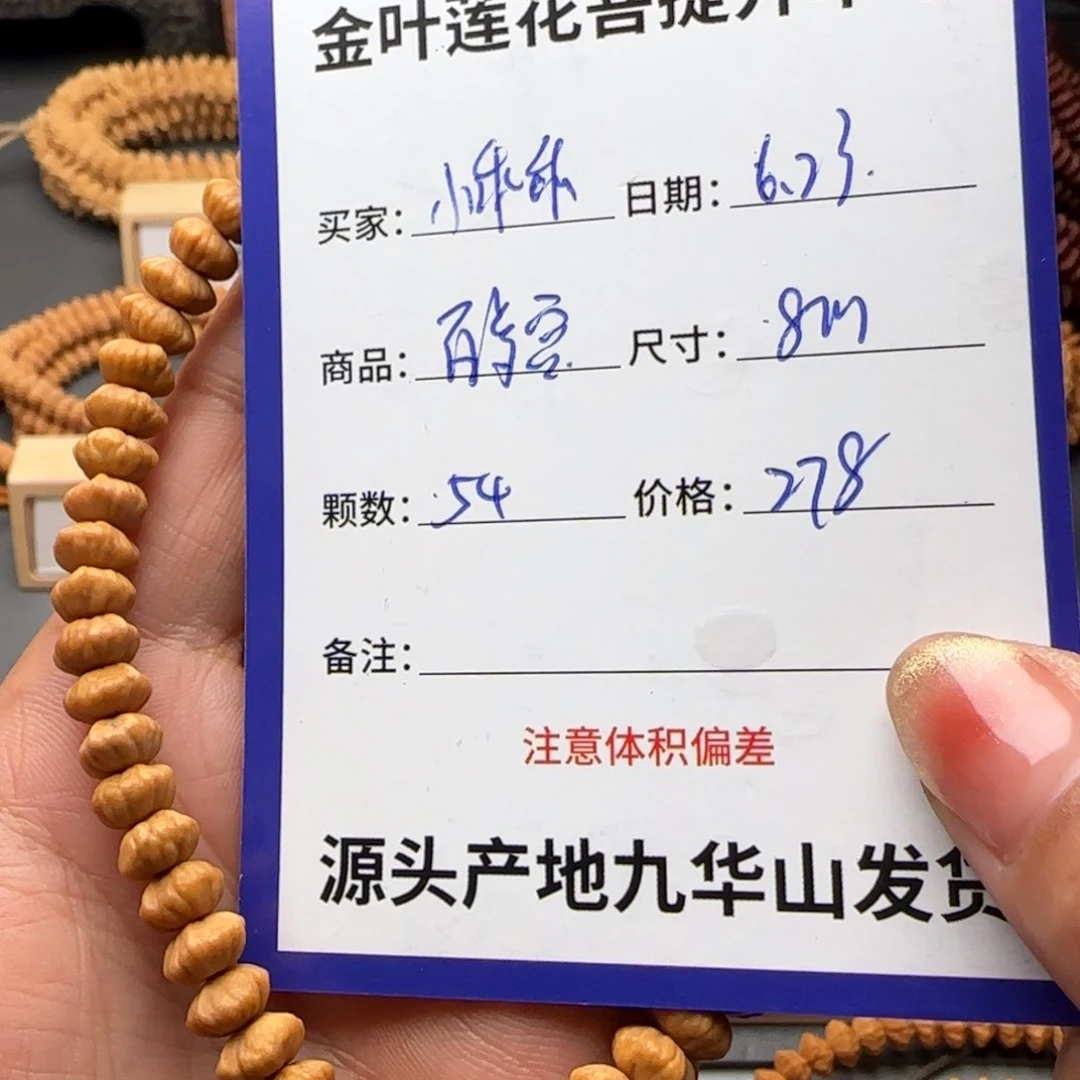 金叶莲花菩提
买家： 日期：6.23.
商品： 尺寸：8m
颗数：54 价格：278
备注：
注意体积偏差
源头产地九华山发货